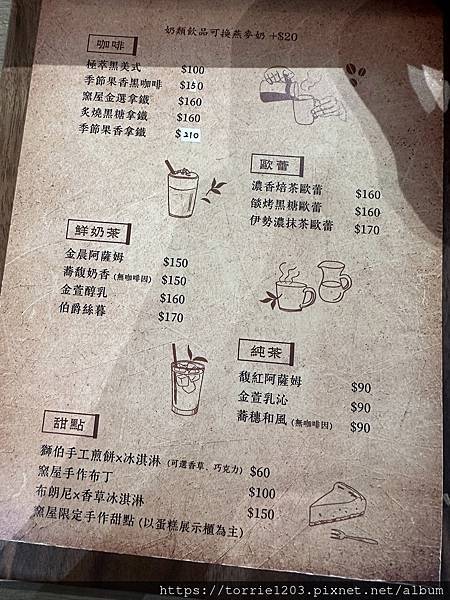 奶類飲品可換燕麥奶 +$20
咖啡
極萃黑美式 $100
季節果香黑咖啡 $150
窯屋金選拿鐵 $160
炙燒黑糖拿鐵 $160
季節果香拿鐵 $210
歐蕾
濃香焙茶歐蕾 $160
燄烤黑糖歐蕾 $160
伊勢濃抹茶歐蕾 $170
鮮奶茶
金晨阿薩姆 $150
蕎馥奶香 (無咖啡因) $150
金萱醇乳 $160
伯爵絲暮 $170
純茶
馥紅阿薩姆 $90
金萱乳沁 $90
蕎穗和風 (無咖啡因) $90
甜點
獅伯手工煎餅x冰淇淋 (可選香草、巧克力) $60
窯屋手作布丁 $100
布朗尼x香草冰淇淋 $150
窯屋限定手作甜點 (以蛋糕展示櫃為主)
https://torrie1203.pixnet.net/album